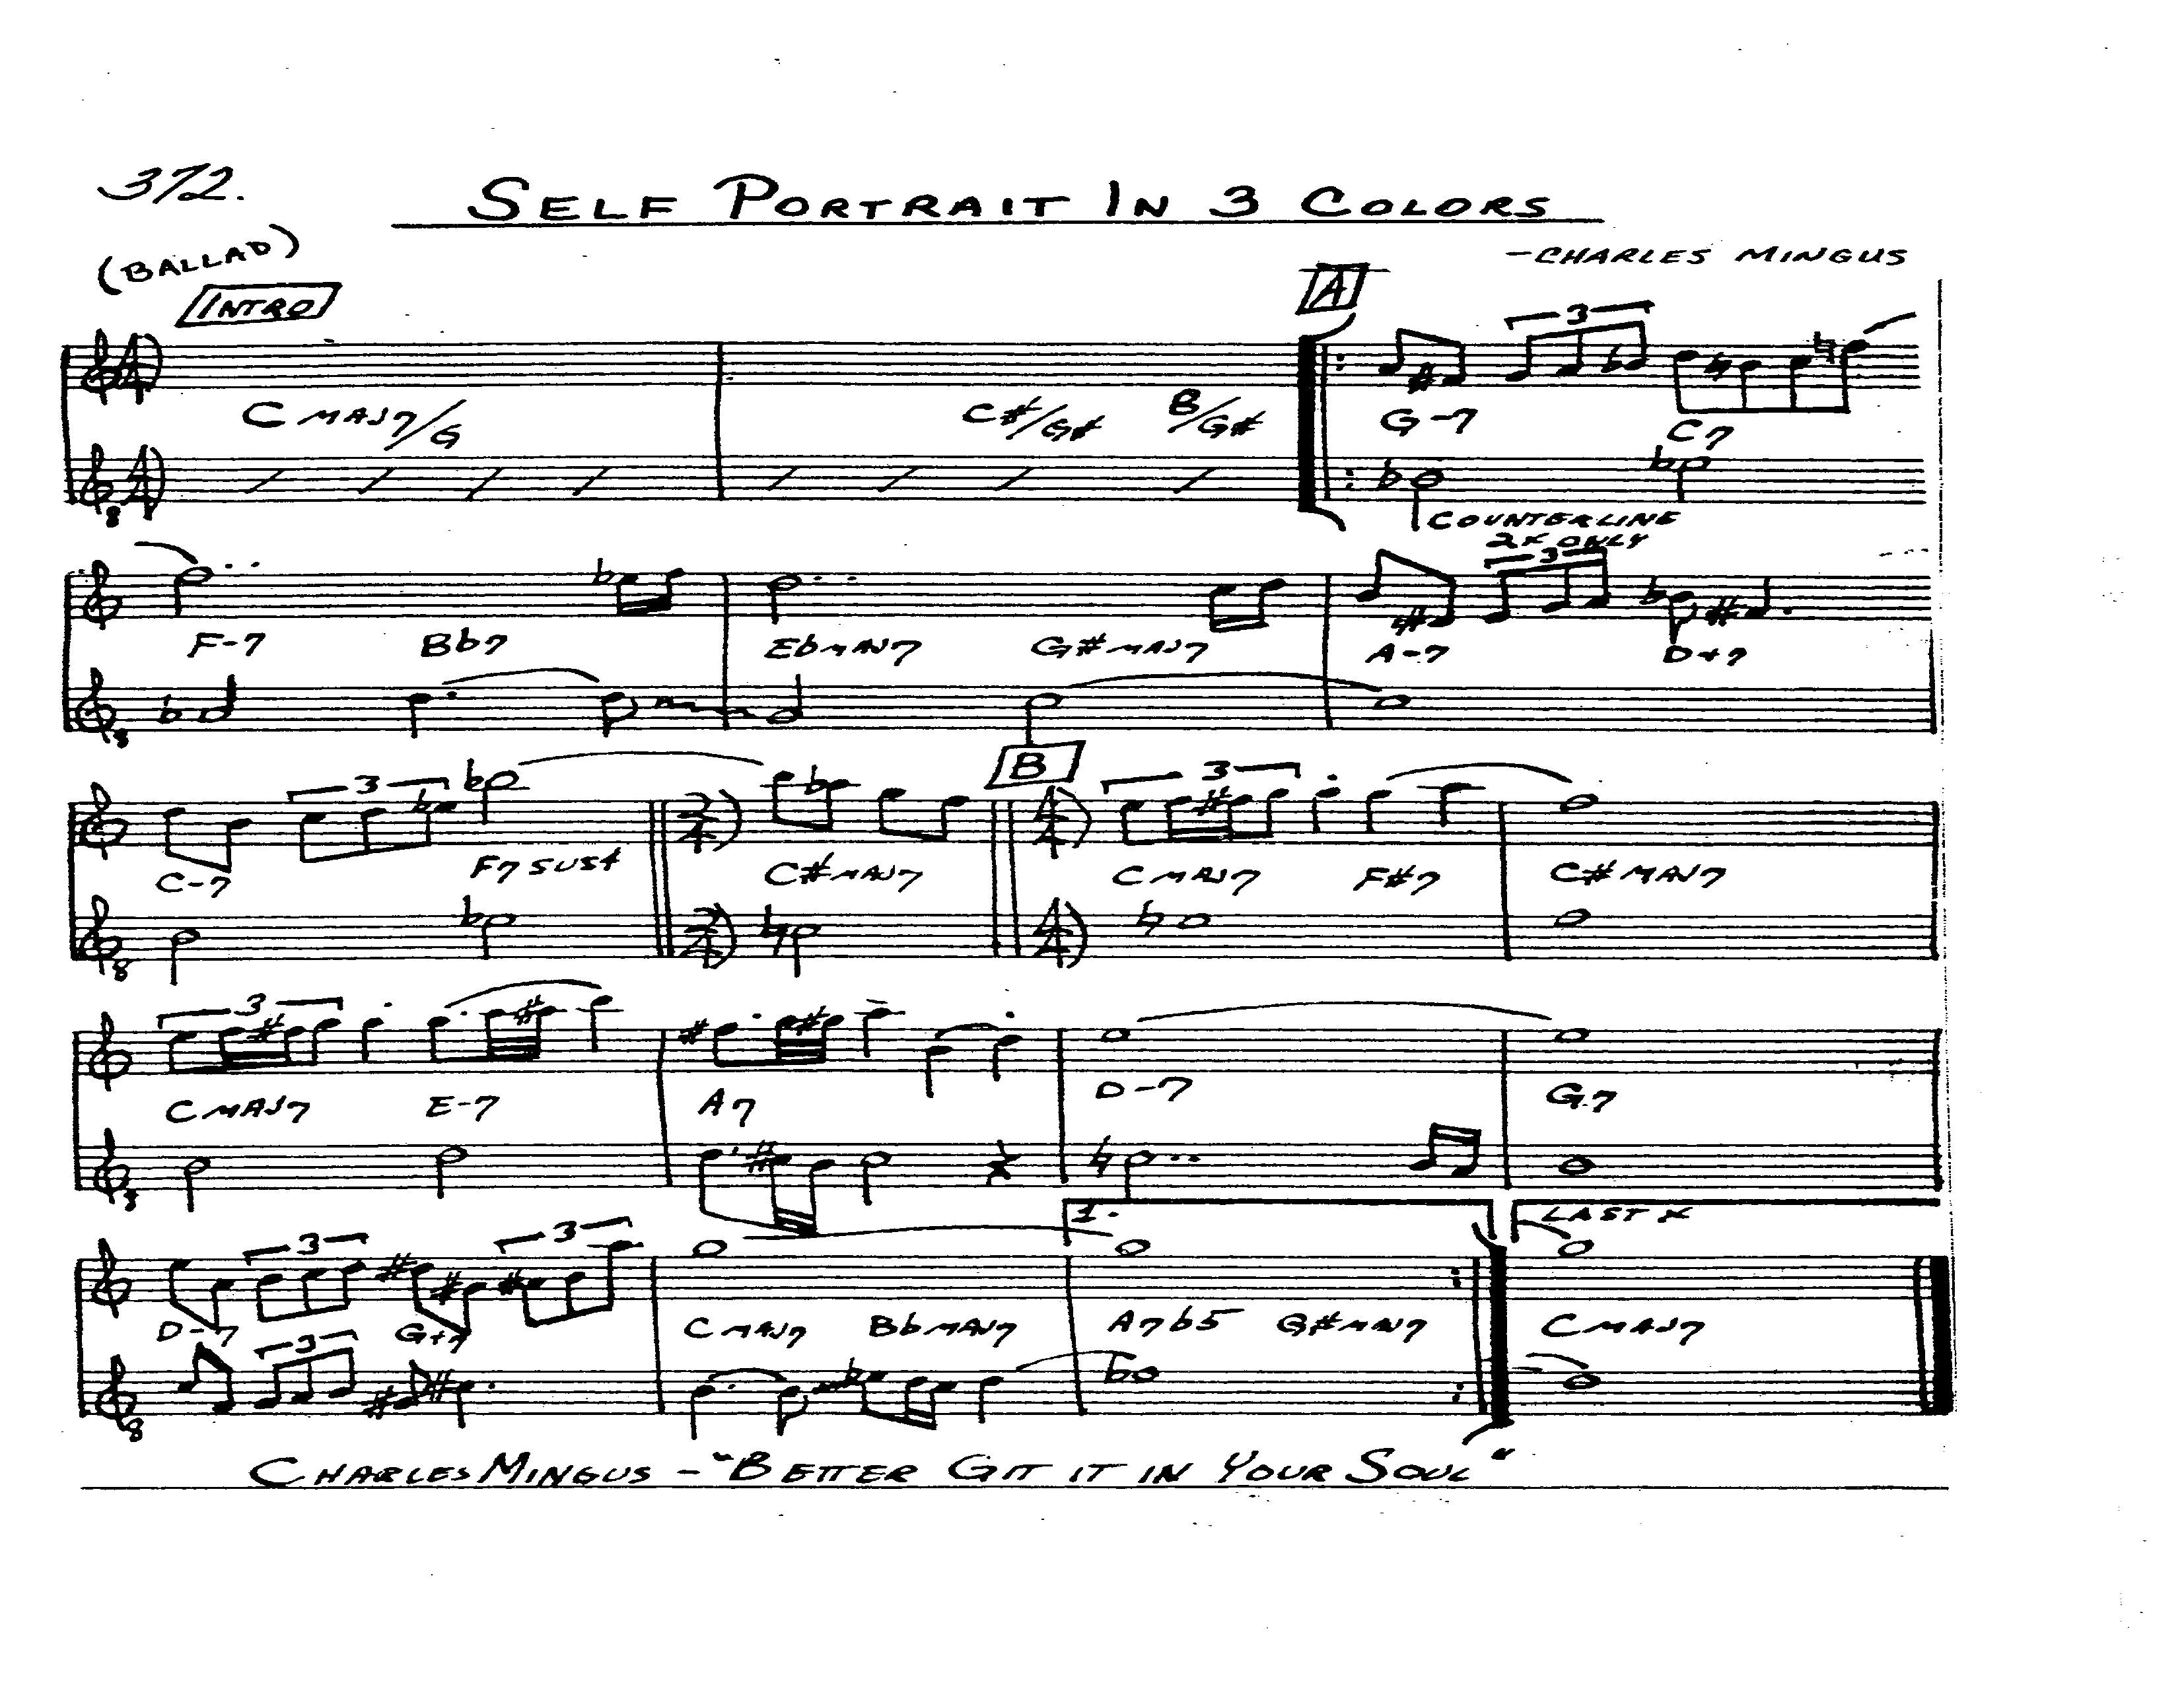 372.
SELF PORTRAIT IN 3 COLORS
(BALLAD)
-CHARLES MINGUS
INTRO
A
3
C MAJ7/G C#/G# B/G# G-7 C7
COUNTERLINE
2X ONLY
3
F-7 Bb7 EbMAJ7 G#MAJ7 A-7 D+7
B
3 3
C-7 F7SUS4 C#MAJ7 CMAJ7 F#7 C#MAJ7
3
CMAJ7 E-7 A7 D-7 G7
1. LAST X
3 3
D-7 G+7 CMAJ7 BbMAJ7 A7b5 G#MAJ7 CMAJ7
3
CHARLES MINGUS - "BETTER GIT IT IN YOUR SOUL"